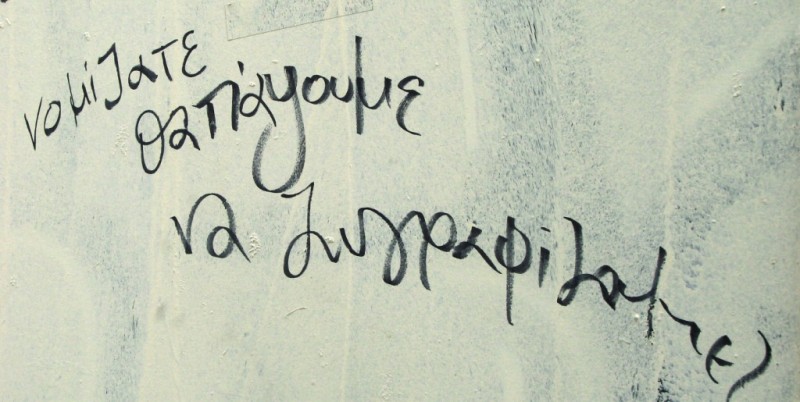 νομίζατε
θα πάψουμε
να ζωγραφίζουμε;